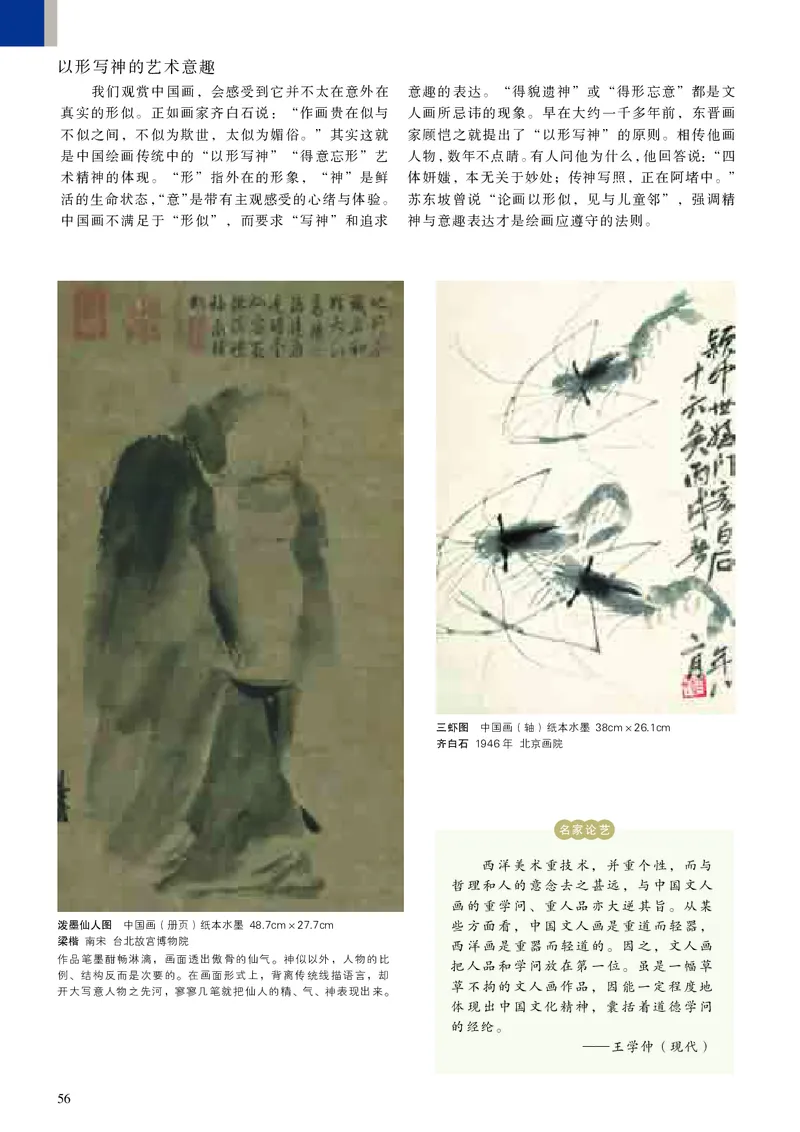 以形写神的艺术意趣
我们观赏中国画，会感受到它并不太在意外在
真实的形似。正如画家齐白石说：“作画贵在似与
不似之间，不似为欺世，太似为媚俗。”其实这就
是中国绘画传统中的“以形写神”“得意忘形”艺
术精神的体现。“形”指外在的形象，“神”是鲜
活的生命状态，“意”是带有主观感受的心绪与体验。
中国画不满足于“形似”，而要求“写神”和追求
意趣的表达。“得貌遗神”或“得形忘意”都是文
人画所忌讳的现象。早在大约一千多年前，东晋画
家顾恺之就提出了“以形写神”的原则。相传他画
人物，数年不点睛。有人问他为什么，他回答说：“四
体妍媸，本无关于妙处；传神写照，正在阿堵中。”
苏东坡曾说“论画以形似，见与儿童邻”，强调精
神与意趣表达才是绘画应遵守的法则。
地行不
识名和
姓大似
高阳一
酒徒应
是瑶台
仙宴罢
淋漓襟
袖尚模
糊
颖中世妹门客白石
十六矣丙戌
年八
六月
泼墨仙人图 中国画（册页）纸本水墨 48.7cm×27.7cm
梁楷 南宋 台北故宫博物院
作品笔墨酣畅淋漓，画面透出傲骨的仙气。神似以外，人物的比
例、结构反而是次要的。在画面形式上，背离传统线描语言，却
开大写意人物之先河，寥寥几笔就把仙人的精、气、神表现出来。
三虾图 中国画（轴）纸本水墨 38cm×26.1cm
齐白石 1946年 北京画院
名家论艺
西洋美术重技术，并重个性，而与
哲理和人的意念去之甚远，与中国文人
画的重学问、重人品亦大逆其旨。从某
些方面看，中国文人画是重道而轻器，
西洋画是重器而轻道的。因之，文人画
把人品和学问放在第一位。虽是一幅草
草不拘的文人画作品，因能一定程度地
体现出中国文化精神，囊括着道德学问
的经纶。
——王学仲（现代）
56